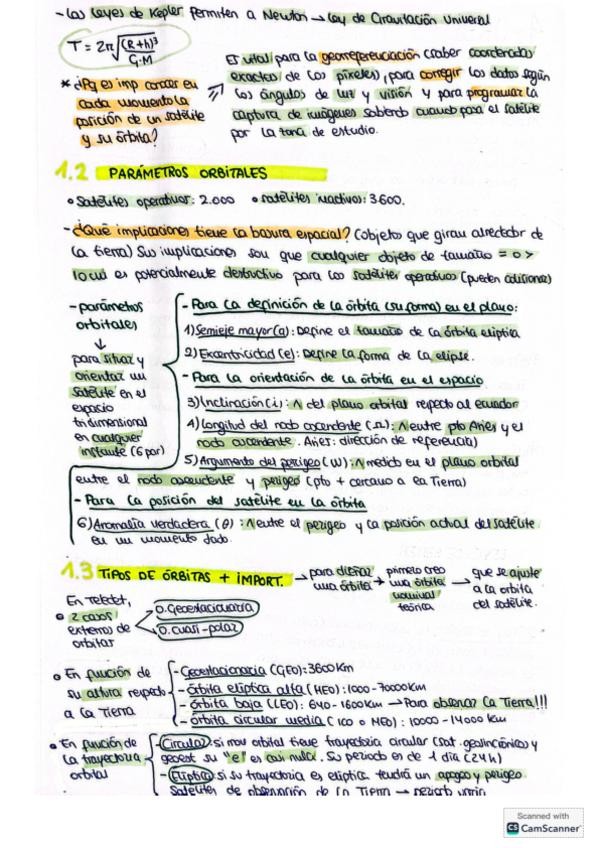 - Las leyes de Kepler permiten a Newton → ley de Gravitación Universal
T = 2π√((R+h)³ / G·M)
* ¿Pq es imp conocer en cada momento la posición de un satélite y su órbita?
⇒ Es vital para la georreferenciación (saber coordenadas
exactas de los píxeles), para corregir los datos según
los ángulos de luz y visión y para programar la
captura de imágenes sabiendo cuando pasa el satélite
por la zona de estudio.
1.2 PARÁMETROS ORBITALES
• Satélites operativos: 2.000 • satélites inactivos: 3600.
- ¿Qué implicaciones tiene la basura espacial? (objetos que giran alrededor de
la tierra) Sus implicaciones son que cualquier objeto de tamaño = o >
10 cm es potencialmente destructivo para los satélites operativos (pueden colisionar)
- parámetros
orbitales
↓
para situar y
orientar un
satélite en el
espacio
tridimensional
en cualquier
instante (6 por)
- Para la definición de la órbita (su forma) en el plano:
1) Semieje mayor (a): Define el tamaño de la órbita elíptica
2) Excentricidad (e): Define la forma de la elipse.
- Para la orientación de la órbita en el espacio
3) Inclinación (i): Λ del plano orbital respecto al ecuador
4) Longitud del nodo ascendente (Ω): Λ entre pto Aries y el
nodo ascendente. Aries: dirección de referencia)
5) Argumento del perigeo (W): Λ medido en el plano orbital
entre el nodo ascendente y perigeo (pto + cercano a la Tierra)
- Para la posición del satélite en la órbita
6) Anomalía verdadera (θ): Λ entre el perigeo y la posición actual del satélite
en un momento dado.
1.3 TIPOS DE ÓRBITAS + IMPORT.
→ para diseñar
una órbita
→ primero creo
una órbita
nominal
teórica
→ que se ajuste
a la órbita
del satélite.
En Teledet,
• 2 casos
extremos de
orbitar
O. Geoestacionaria
O. cuasi-polar
• En función de
su altura respecto
a la Tierra
- Geoestacionaria (GEO): 3600 Km
- órbita elíptica alta (HEO): 1000 - 70000 Km
- órbita baja (LEO): 640 - 1600 Km → Para observar la Tierra!!!
- órbita circular media (ICO o MEO): 10000 - 14000 Km
• En función de
la trayectoria
orbital
- Circular: si mov orbital tiene trayectoria circular (sat. geosincrónicos y
geoest su "e" es casi nula. Su periodo es de 1 día (24h)
- Elíptica: si su trayectoria es elíptica tendrá un apogeo y perigeo.
Satélites de observación de la Tierra → periodo varía
Scanned with
CS CamScanner